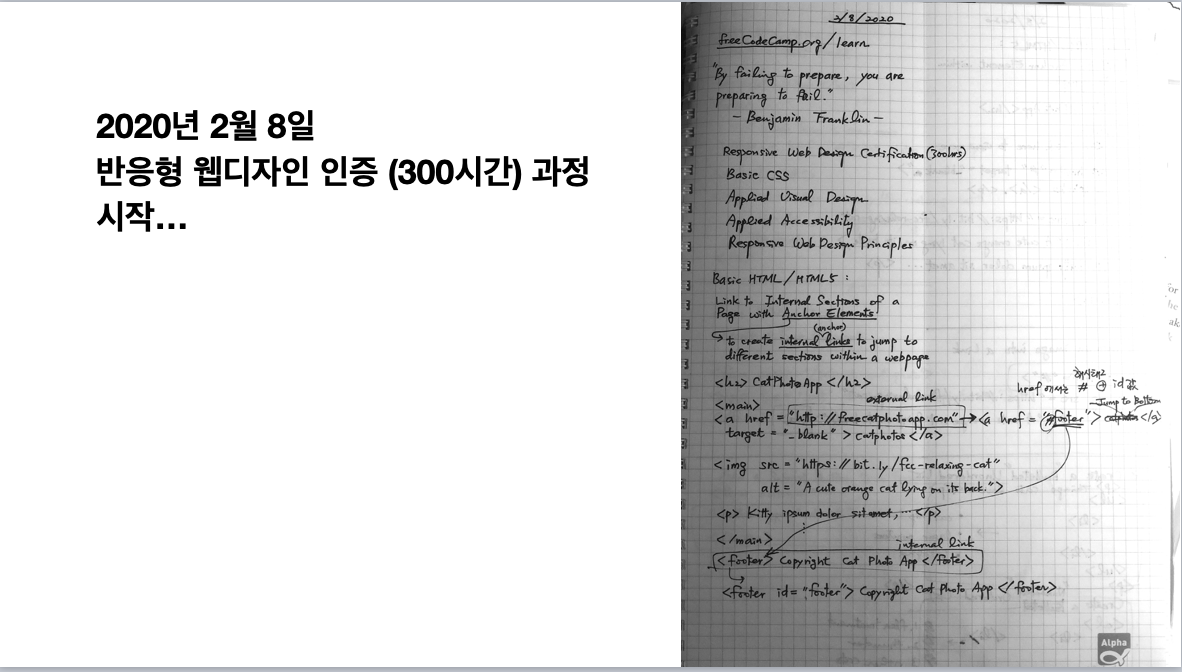 2020년 2월 8일
반응형 웹디자인 인증 (300시간) 과정
시작...
2/8/2020
freeCodeCamp.org/learn
"By failing to prepare, you are
preparing to fail."
— Benjamin Franklin —
Responsive Web Design Certification (300hrs)
Basic CSS
Applied Visual Design
Applied Accessibility
Responsive Web Design Principles
Basic HTML/HTML5 :
Link to Internal Sections of a
Page with Anchor Elements
(anchor)
to create internal links to jump to
different sections within a webpage
<h2> CatPhotoApp </h2>
해시태그
href에서는 # → id값
<main>
external link
Jump to Bottom
<a href = "http://freecatphotoapp.com" → <a href = "#footer"> catphotos </a>
target = "_blank" > catphotos </a>
<img src = "https://bit.ly/fcc-relaxing-cat"
alt = "A cute orange cat lying on its back.">
<p> Kitty ipsum dolor sit amet, ... </p>
</main>
internal link
<footer> Copyright Cat Photo App </footer>
<footer id="footer"> Copyright Cat Photo App </footer>
Alpha